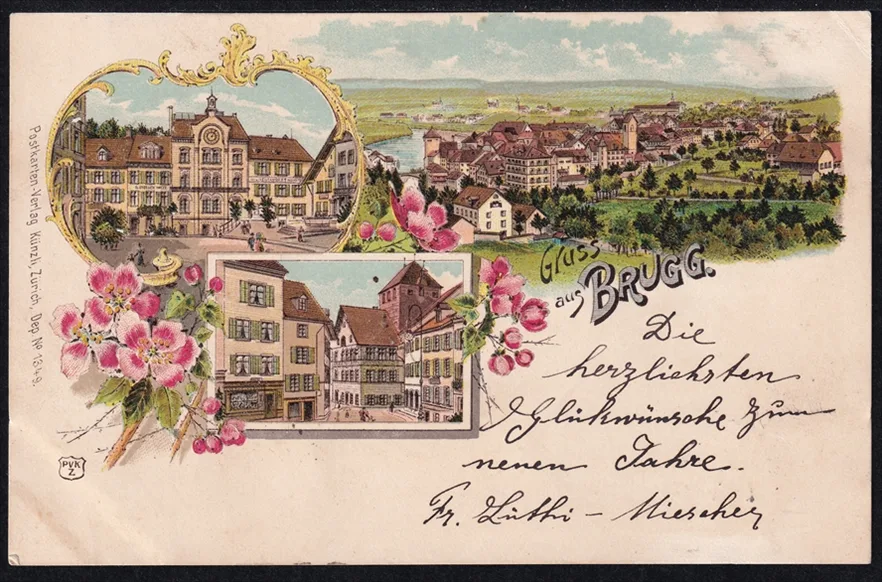 Postkarten-Verlag Künzli, Zürich, Dep. No 1349.
Gruss
aus BRUGG.
Die
herzlichsten
Glükwünsche zum
neuen Jahre.
Fr. Lüthi - Miescher
PVK
Z